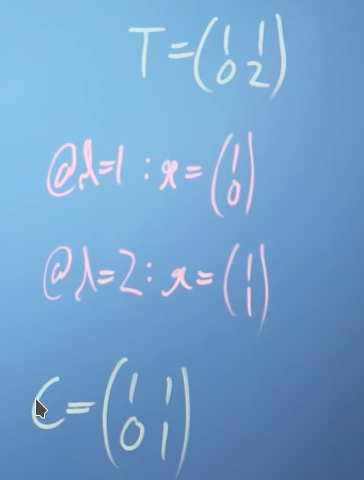 T = (1 1
0 2)
@λ=1 : x = (1
0)
@λ=2 : x = (1
1)
C = (1 1
0 1)